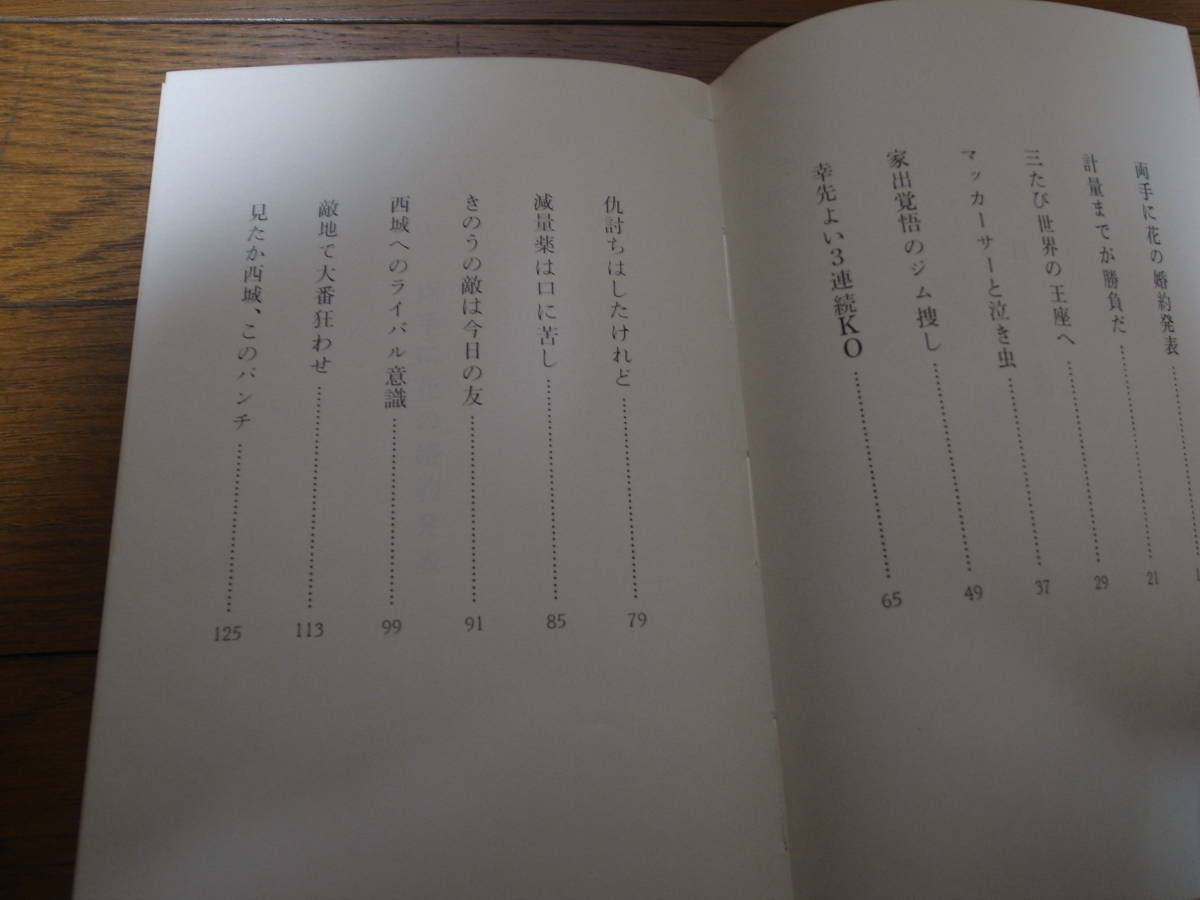 両手に花の婚約発表…………
計量までが勝負だ…………21
三たび世界の王座へ…………29
マッカーサーと泣き虫…………37
家出覚悟のジム捜し…………49
幸先よい3連続KO…………65
仇討ちはしたけれど…………79
減量薬は口に苦し…………85
きのうの敵は今日の友…………91
西城へのライバル意識…………99
敵地で大番狂わせ…………113
見たか西城、このパンチ…………125